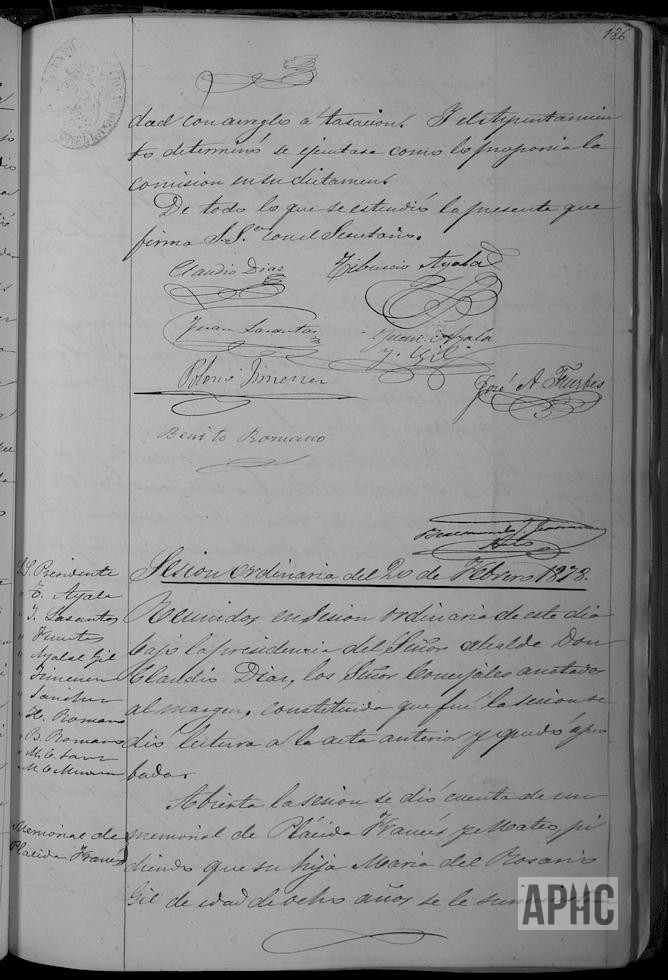 136
dad con arreglo a tasacion. Y el Ayuntamien
to determinó se ejecutase como lo proponia la
comision en su dictamen.
De todo lo que se estendió la presente que
firma S.Sª con el Secretario.
Claudio Diaz
Tiburcio Ayala
Juan Lasantas
Juan Ayala
y Gil
Polonio Jimenez
José A Fuertes
Benito Romano
Sesion ordinaria del 20 de Febrero 1878.
S. Presidente
" T. Ayala
" J. Lasantas
" Fuertes
" Ayala Gil
" Jimenez
" Sanchez
" H. Romano
" B. Romano
Reunidos en sesion ordinaria de este dia
bajo la presidencia del Señor Alcalde Don
Claudio Diaz, los Señor Concejales anotados
al margen, constituida que fué la sesion se
dió lectura a la acta anterior y quedó apro
bada.
Memorial de
Placida Francés
Abierta la sesion se dió cuenta de un
memorial de Plácida Francés y Mateo, pi
diendo que su hija Maria del Rosario
Gil de edad de ocho años se le
APHC